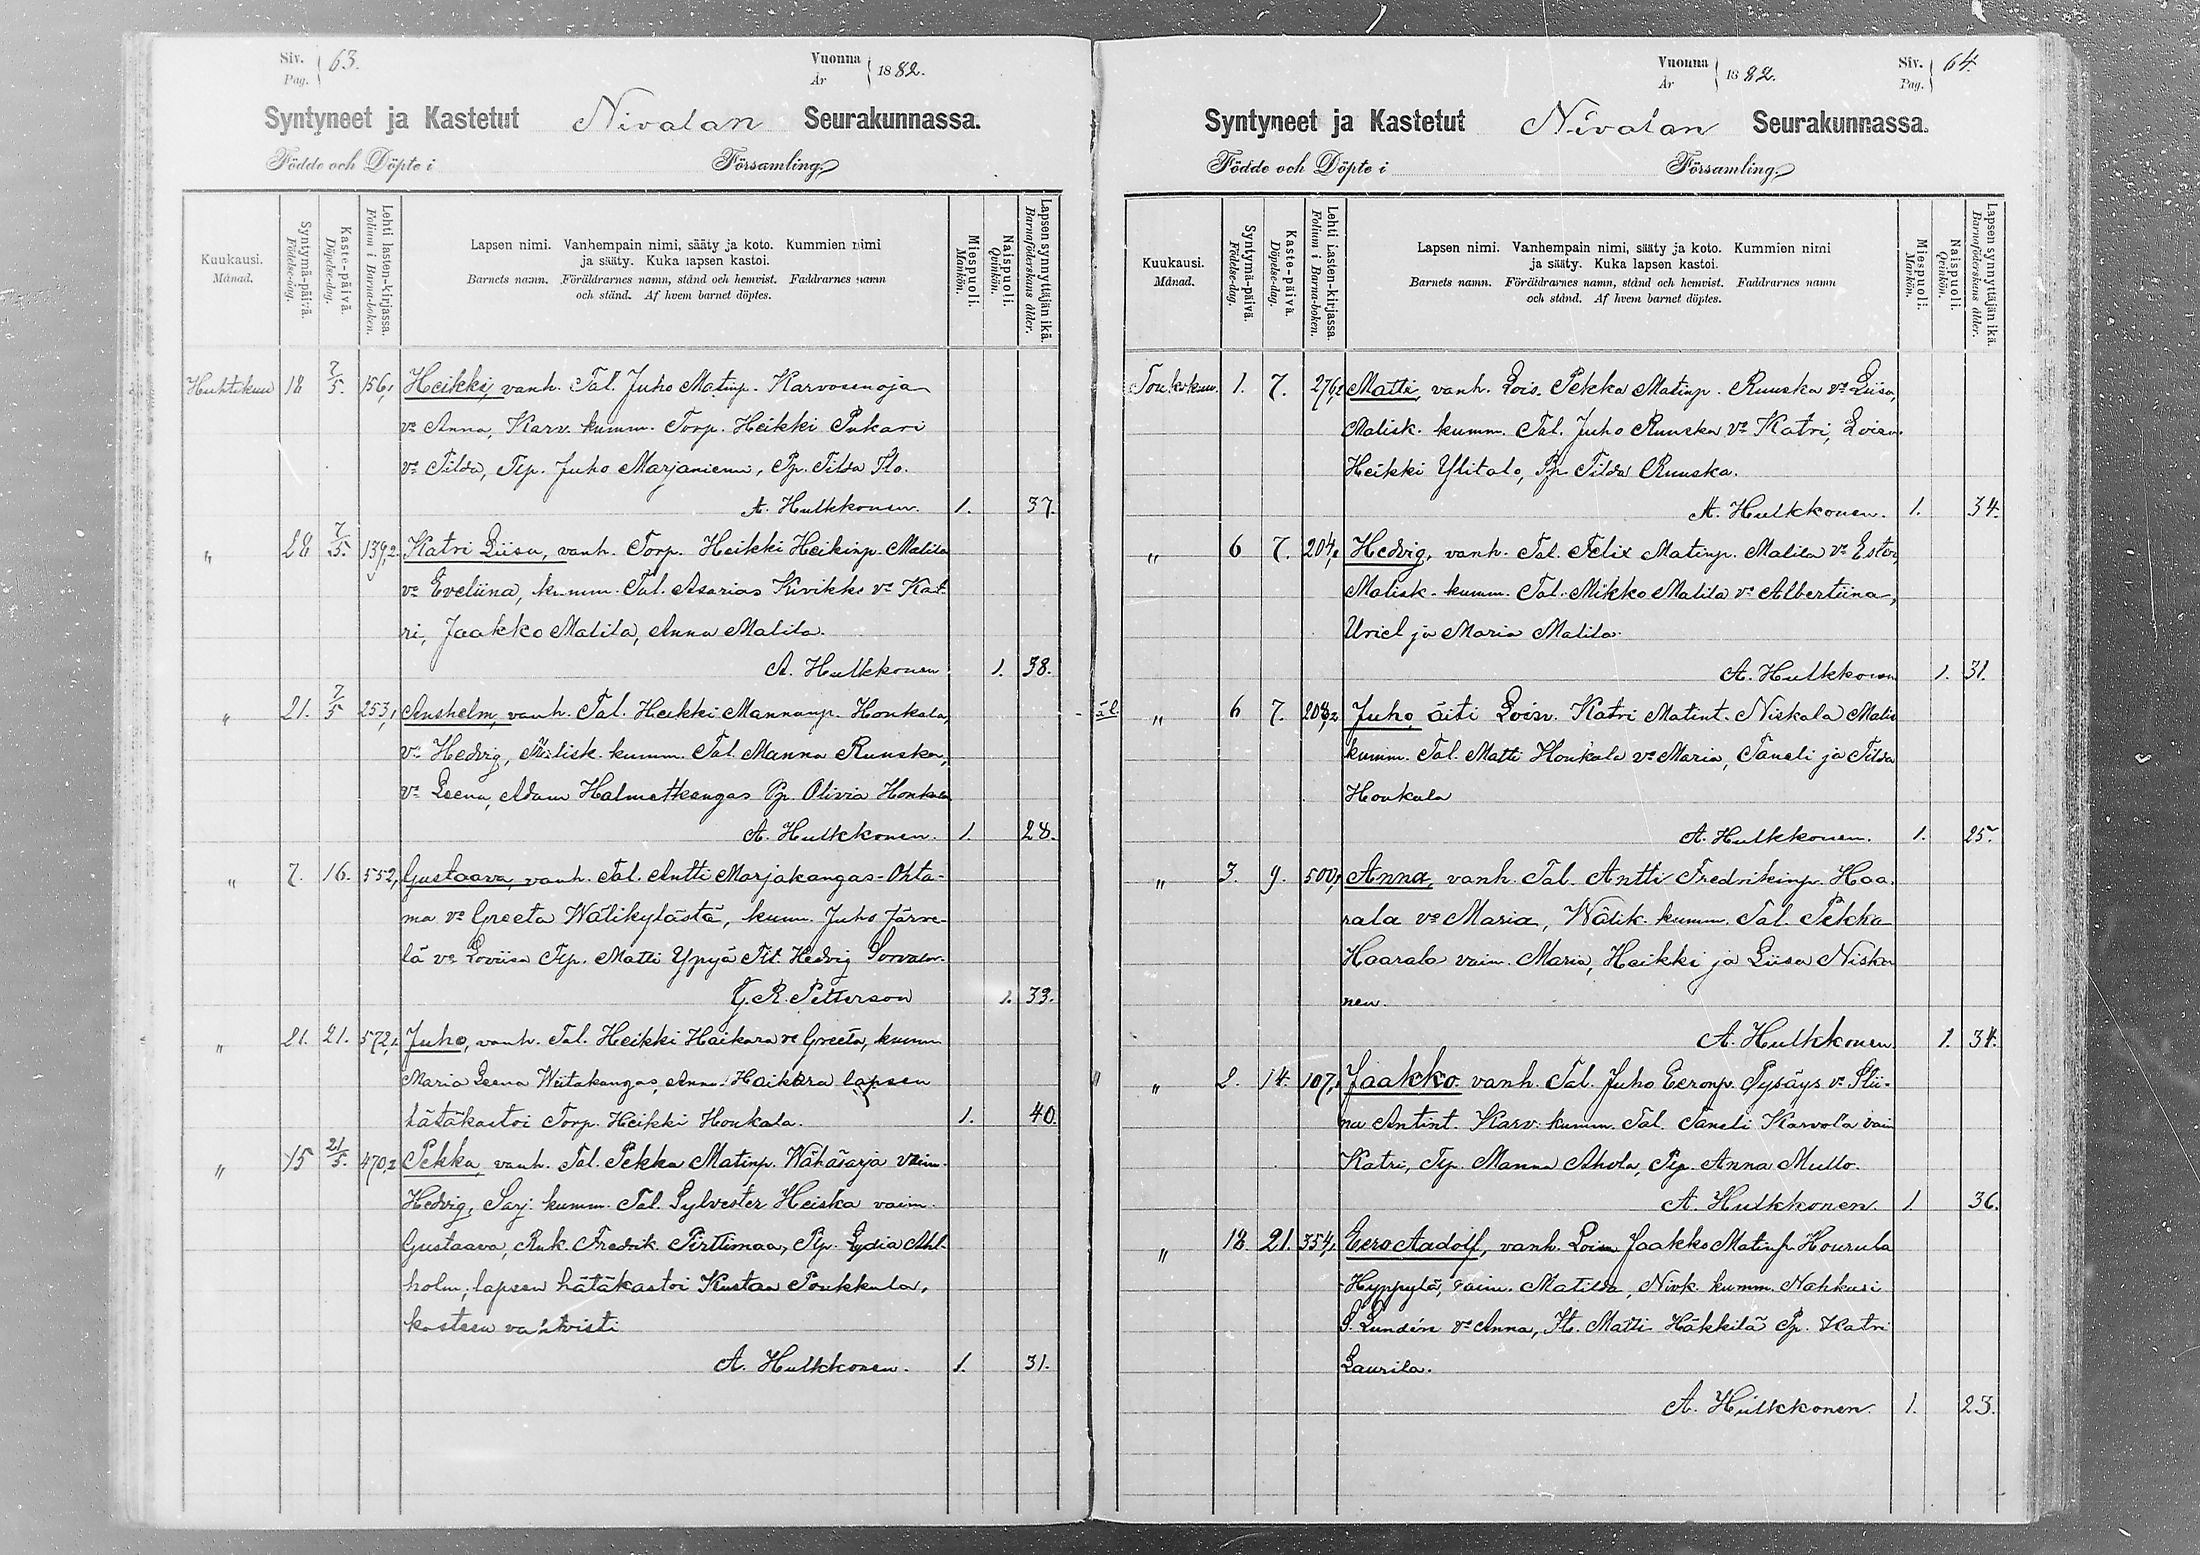 Siv. Pag. 63. Vuonna År 1882.
Syntyneet ja Kastetut Nivalan Seurakunnassa.
Födde och Döpte i Församling.
Kuukausi. Månad.
Syntymä-päivä. Födelse-dag.
Kaste-päivä. Döpelse-dag.
Lehti lasten-kirjassa. Folium i Barna-boken.
Lapsen nimi. Vanhempain nimi, sääty ja koto. Kummien nimi
ja sääty. Kuka lapsen kastoi.
Barnets namn. Föräldrarnes namn, stånd och hemvist. Faddrarnes namn
och stånd. Af hvem barnet döptes.
Miespuoli. Mankön.
Naispuoli. Qvinkön.
Lapsen synnyttäjän ikä. Barnaföderskans ålder.
Huhtikuu 18 7/5. 156,1 Heikki, vanh. Tal. Juho Matinp. Karvosenoja
vo Anna, Karv. kumm. Torp. Heikki Pakari
vo Tilda, Tsp. Juho Marjaniemi, Pp. Tilda Flo.
A. Hulkkonen. 1. 37.
„ 28 7/5. 139,2 Katri Liisa, vanh. Torp. Heikki Heikinp. Malila
vo Eveliina, kumm. Tal. Asarias Kivikko vo Kat-
ri, Jaakko Malila, Anna Malila.
A. Hulkkonen 1. 38.
„ 21. 7/5 253,1 Anshelm, vanh. Tal. Heikki Mannanp. Honkala,
vo Hedvig, Malisk. kumm. Tal. Manna Ruuska,
vo Leena, Adam Halmetkangas Pp. Olivia Honkala
A. Hulkkonen. 1. 28.
„ 7. 16. 552, Gustaava, vanh. Tal. Antti Marjakangas-Ohta-
ma vo Greeta Wälikylästä, kumm. Juho Järve-
lä vo Loviisa Tsp. Matti Ypyä Tlt. Hedvig Sorvala.
G. R. Petterson 1. 33.
„ 21. 21. 572,1. Juho, vanh. Tal. Heikki Haikara vo Greeta, kumm
Maria Leena Wiitakangas, Anna Haikara lapsen
hätäkastoi Torp. Heikki Honkala. 1. 40.
„ 15 21/5. 470,2 Pekka, vanh. Tal. Pekka Matinp. Wähäsarja vaim.
Hedvig, Sarj. kumm. Tal. Sylvester Heiska vaim.
Gustaava, Ruk. Fredrik Pirttimaa, Pp. Lydia Ahl-
holm, lapsen hätäkastoi Kustaa Poukkula,
kasteen vahvisti
A. Hulkkonen. 1. 31.
Vuonna År 1882. Siv. Pag. 64.
Syntyneet ja Kastetut Nivalan Seurakunnassa.
Födde och Döpte i Församling.
Kuukausi. Månad.
Syntymä-päivä. Födelse-dag.
Kaste-päivä. Döpelse-dag.
Lehti Lasten-kirjassa. Folium i Barna-boken.
Lapsen nimi. Vanhempain nimi, sääty ja koto. Kummien nimi
ja sääty. Kuka lapsen kastoi.
Barnets namn. Föräldrarnes namn, stånd och hemvist. Faddrarnes namn
och stånd. Af hvem barnet döptes.
Miespuoli. Mankön.
Naispuoli. Qvinkön.
Lapsen synnyttäjän ikä. Barnaföderskans ålder.
Toukokuu. 1. 7. 276,2 Matti, vanh. Lois. Pekka Matinp. Ruuska vo Liisa,
Malisk. kumm. Tal. Juho Ruuska vo Katri, Loisv.
Heikki Ylitalo, Pp Tilda Ruuska.
A. Hulkkonen. 1. 34.
„ 6 7. 204,2 Hedvig, vanh. Tal. Felix Matinp. Malila vo Ester,
Malisk. kumm. Tal. Mikko Malila vo Albertiina,
Uriel ja Maria Malila.
A. Hulkkonen 1. 31.
äl. „ 6 7. 208,2 Juho, äiti Loisv. Katri Matint. Niskala Malis
kumm. Tal. Matti Honkala vo Maria, Taneli ja Tilda
Honkala
A. Hulkkonen. 1. 25.
„ 3. 9. 500,1 Anna, vanh. Tal. Antti Fredrikinp. Haa-
rala vo Maria, Wälik. kumm. Tal. Pekka
Haarala vaim. Maria, Heikki ja Liisa Niska
nen.
A. Hulkkonen 1. 34.
„ 2. 14. 107,1 Jaakko. vanh. Tal. Juho Eeronp. Pysäys vo Stii-
na Antint. Karv. kumm. Tal. Taneli Karvola vaim
Katri, Tsp. Manna Ahola, Pp. Anna Mullo.
A. Hulkkonen. 1 36.
„ 18. 21. 354,1 Eero Aadolf, vanh. Loisv Jaakko Matinp. Hourula
Hyppylä, vaim. Matilda, Nivk. kumm. Nahkuri
S. Lundén vo Anna, It. Matti Häkkilä Pp. Katri
Laurila.
A. Hulkkonen. 1. 23.